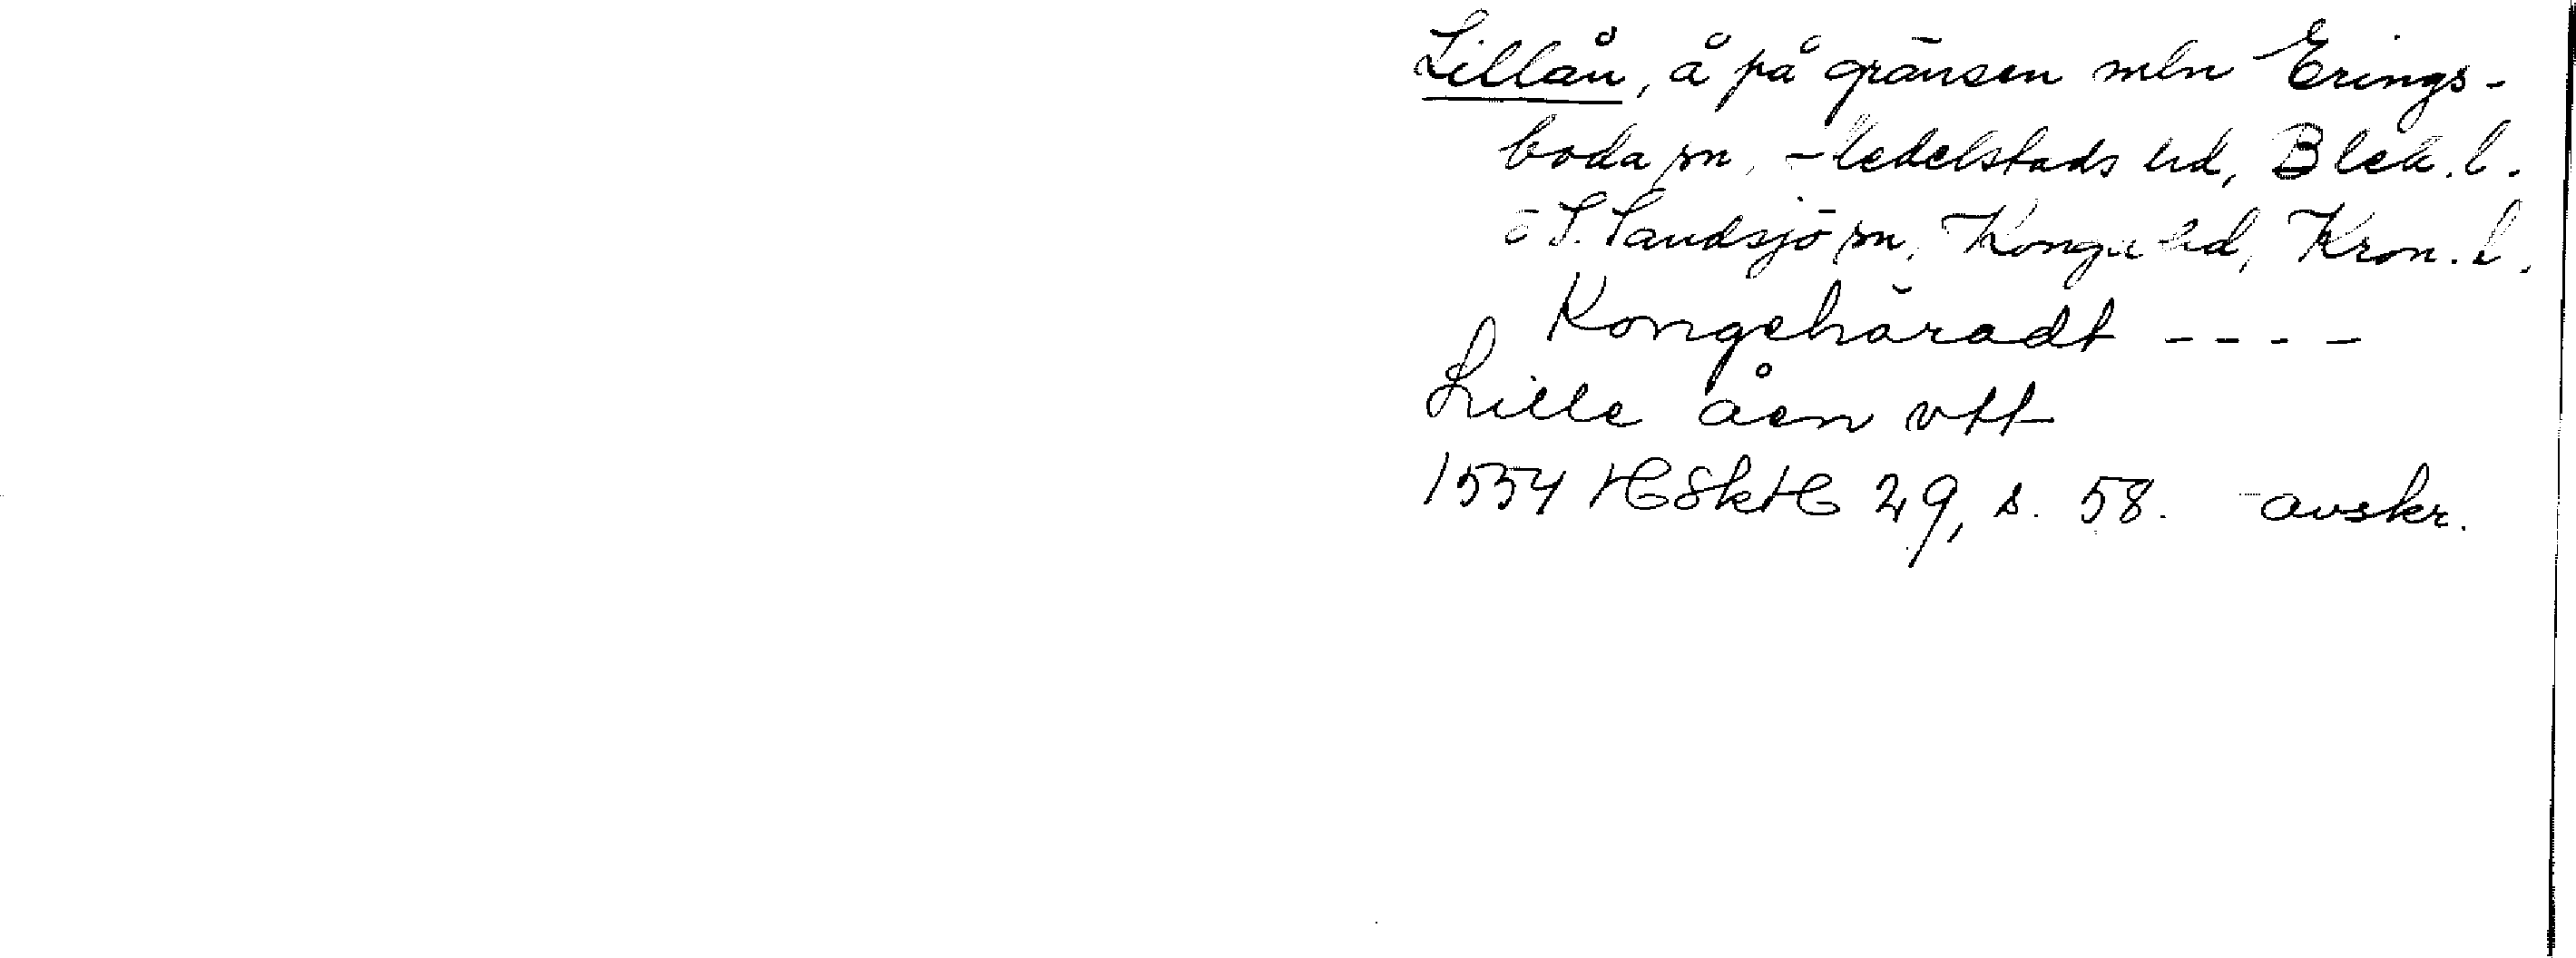 Lillån, å på gränsen mln Erings-
boda sn, Medelstads hd, Blek. l.
o S. Sandsjö sn, Konga hd, Kron. l.
Kongehäradt ----
Lille åen vtt
1554 HSkH 29, s. 58. avskr.